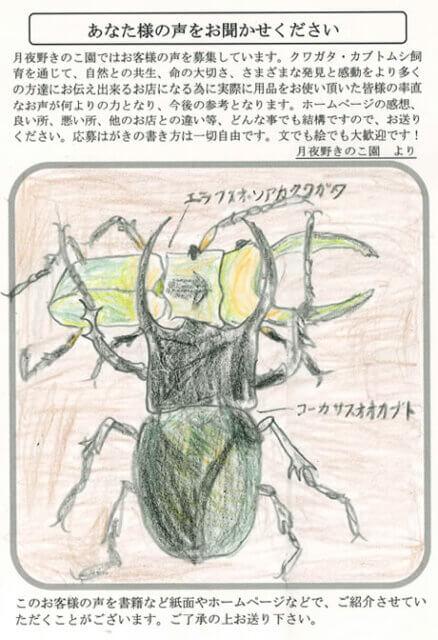 あなた様の声をお聞かせください
月夜野きのこ園ではお客様の声を募集しています。クワガタ・カブトムシ飼
育を通じて、自然との共生、命の大切さ、さまざまな発見と感動をより多く
の方達にお伝え出来るお店になる為に実際に用品をお使い頂いた皆様の率直
なお声が何よりの力となり、今後の参考となります。ホームページの感想、
良い所、悪い所、他のお店との違い等、どんな事でも結構ですので、お送り
ください。応募はがきの書き方は一切自由です。文でも絵でも大歓迎です！
月夜野きのこ園　より
エラフォオ・ソアカクワガタ
コーカサスオオカブト
このお客様の声を書籍など紙面やホームページなどで、ご紹介させてい
ただくことがございます。ご了承の上お送り下さい。